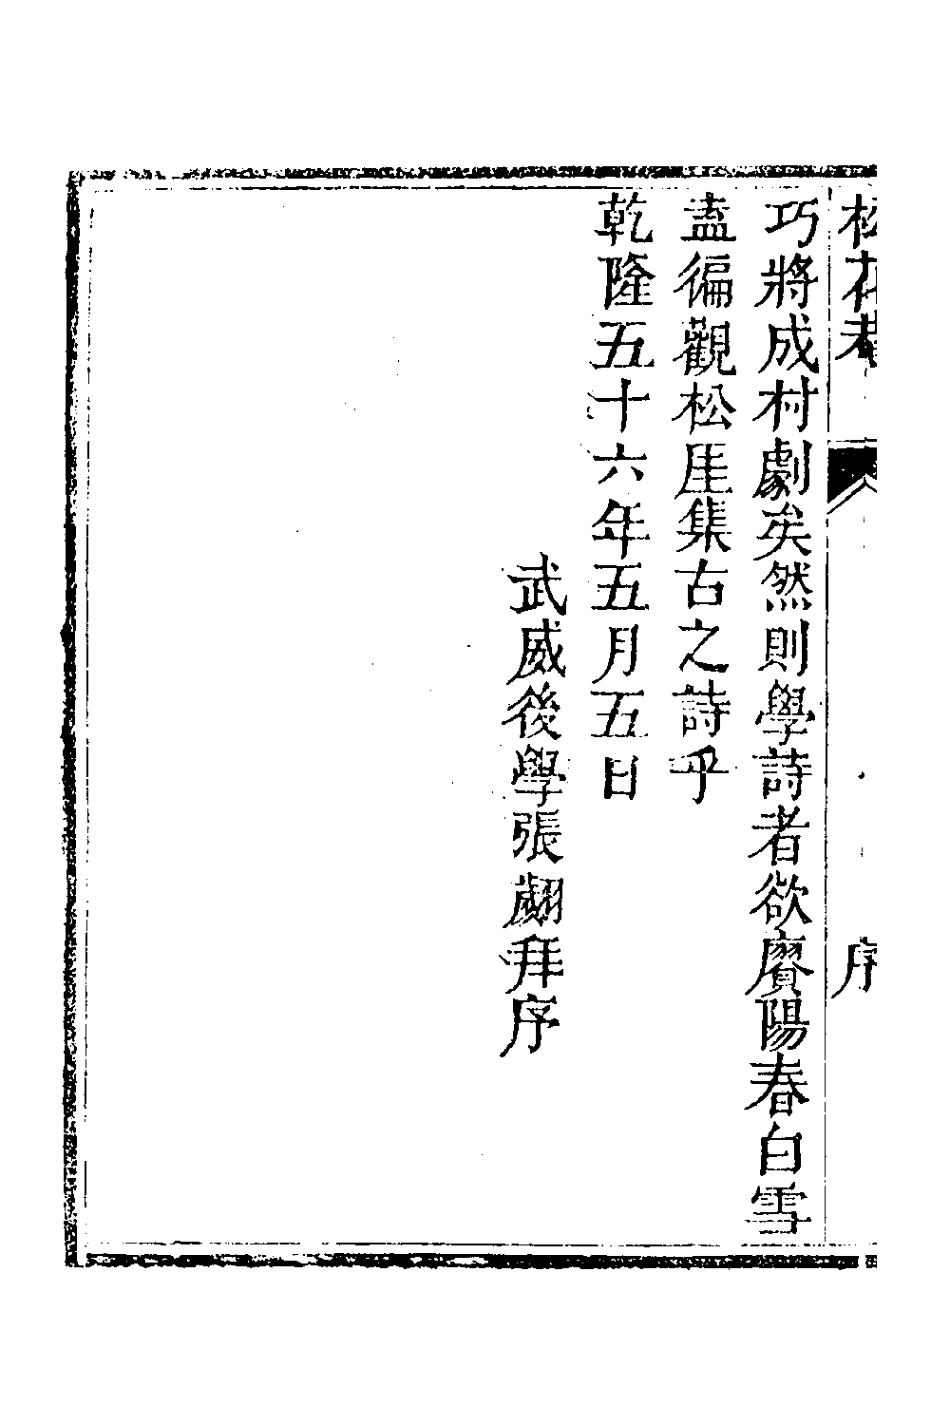 松花菴 序
巧將成村劇矣然則學詩者欲賡陽春白雪
盍徧觀松厓集古之詩乎
乾隆五十六年五月五日
武威後學張翽拜序